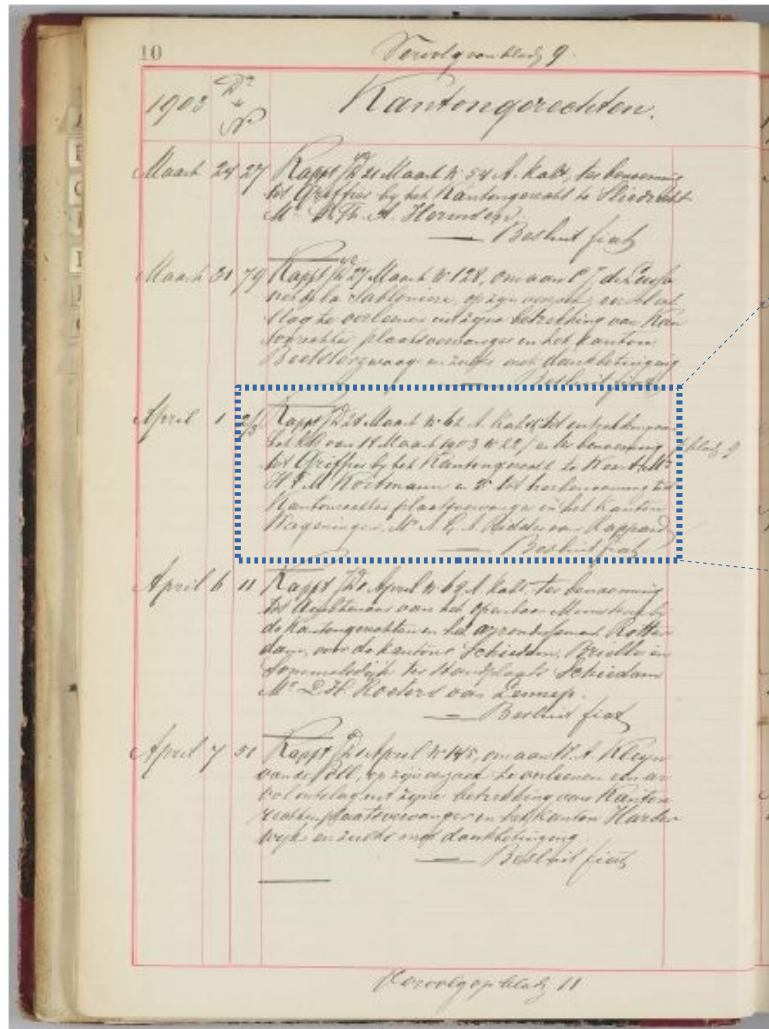 10
Vervolg van bladz 9.
1903 Dr & No Kantongerechten.
Maart 24 27 Rapp. Maart No 54 A. Kab. ter benoeming
tot Griffier by het Kantongerecht te Sliedrecht
Mr
Besluit fiat
Maart 31 79 Rapp. 27 Maart No 128, om aan P J de
de la Sablonière, op zijn verzoek, eervol ont
slag te verleenen uit zijne betrekking van Kan
tonrechter plaatsvervanger in het kanton
Beetsterzwaag en zulks met dankbetuiging
Besluit fiat
April 1 Rapp. 28 Maart No 62 A. Kab. tot intrekking van
het KB van 18 Maart 1903 No 22 / en ter benoeming bladz 9
tot Griffier by het Kantongerecht te Mr
H. F. M. Kortmann en 2o tot herbenoeming tot
Kantonrechter plaatsvervanger in het kanton
Wageningen Mr A. Ridder van Rappard
Besluit fiat
April 6 11 Rapp. April No 69 A. Kab. ter benoeming
tot Ambtenaar van het Openbaar Ministerie bij
de kantongerechten in het arrondissement Rotter
dam, voor de kantons Schiedam, Brielle en
Sommelsdijk ter standplaats Schiedam
Mr Roeters van Lennep.
Besluit fiat
April 7 51 Rapp. April No 145, om aan A. Kleyn
van de Poll, op zijn verzoek te verleenen een eer
vol ontslag uit zijne betrekking van Kanton
rechter plaatsvervanger in het kanton Harder
wijk en zulks met dankbetuiging
Besluit fiat
Vervolg op bladz 11